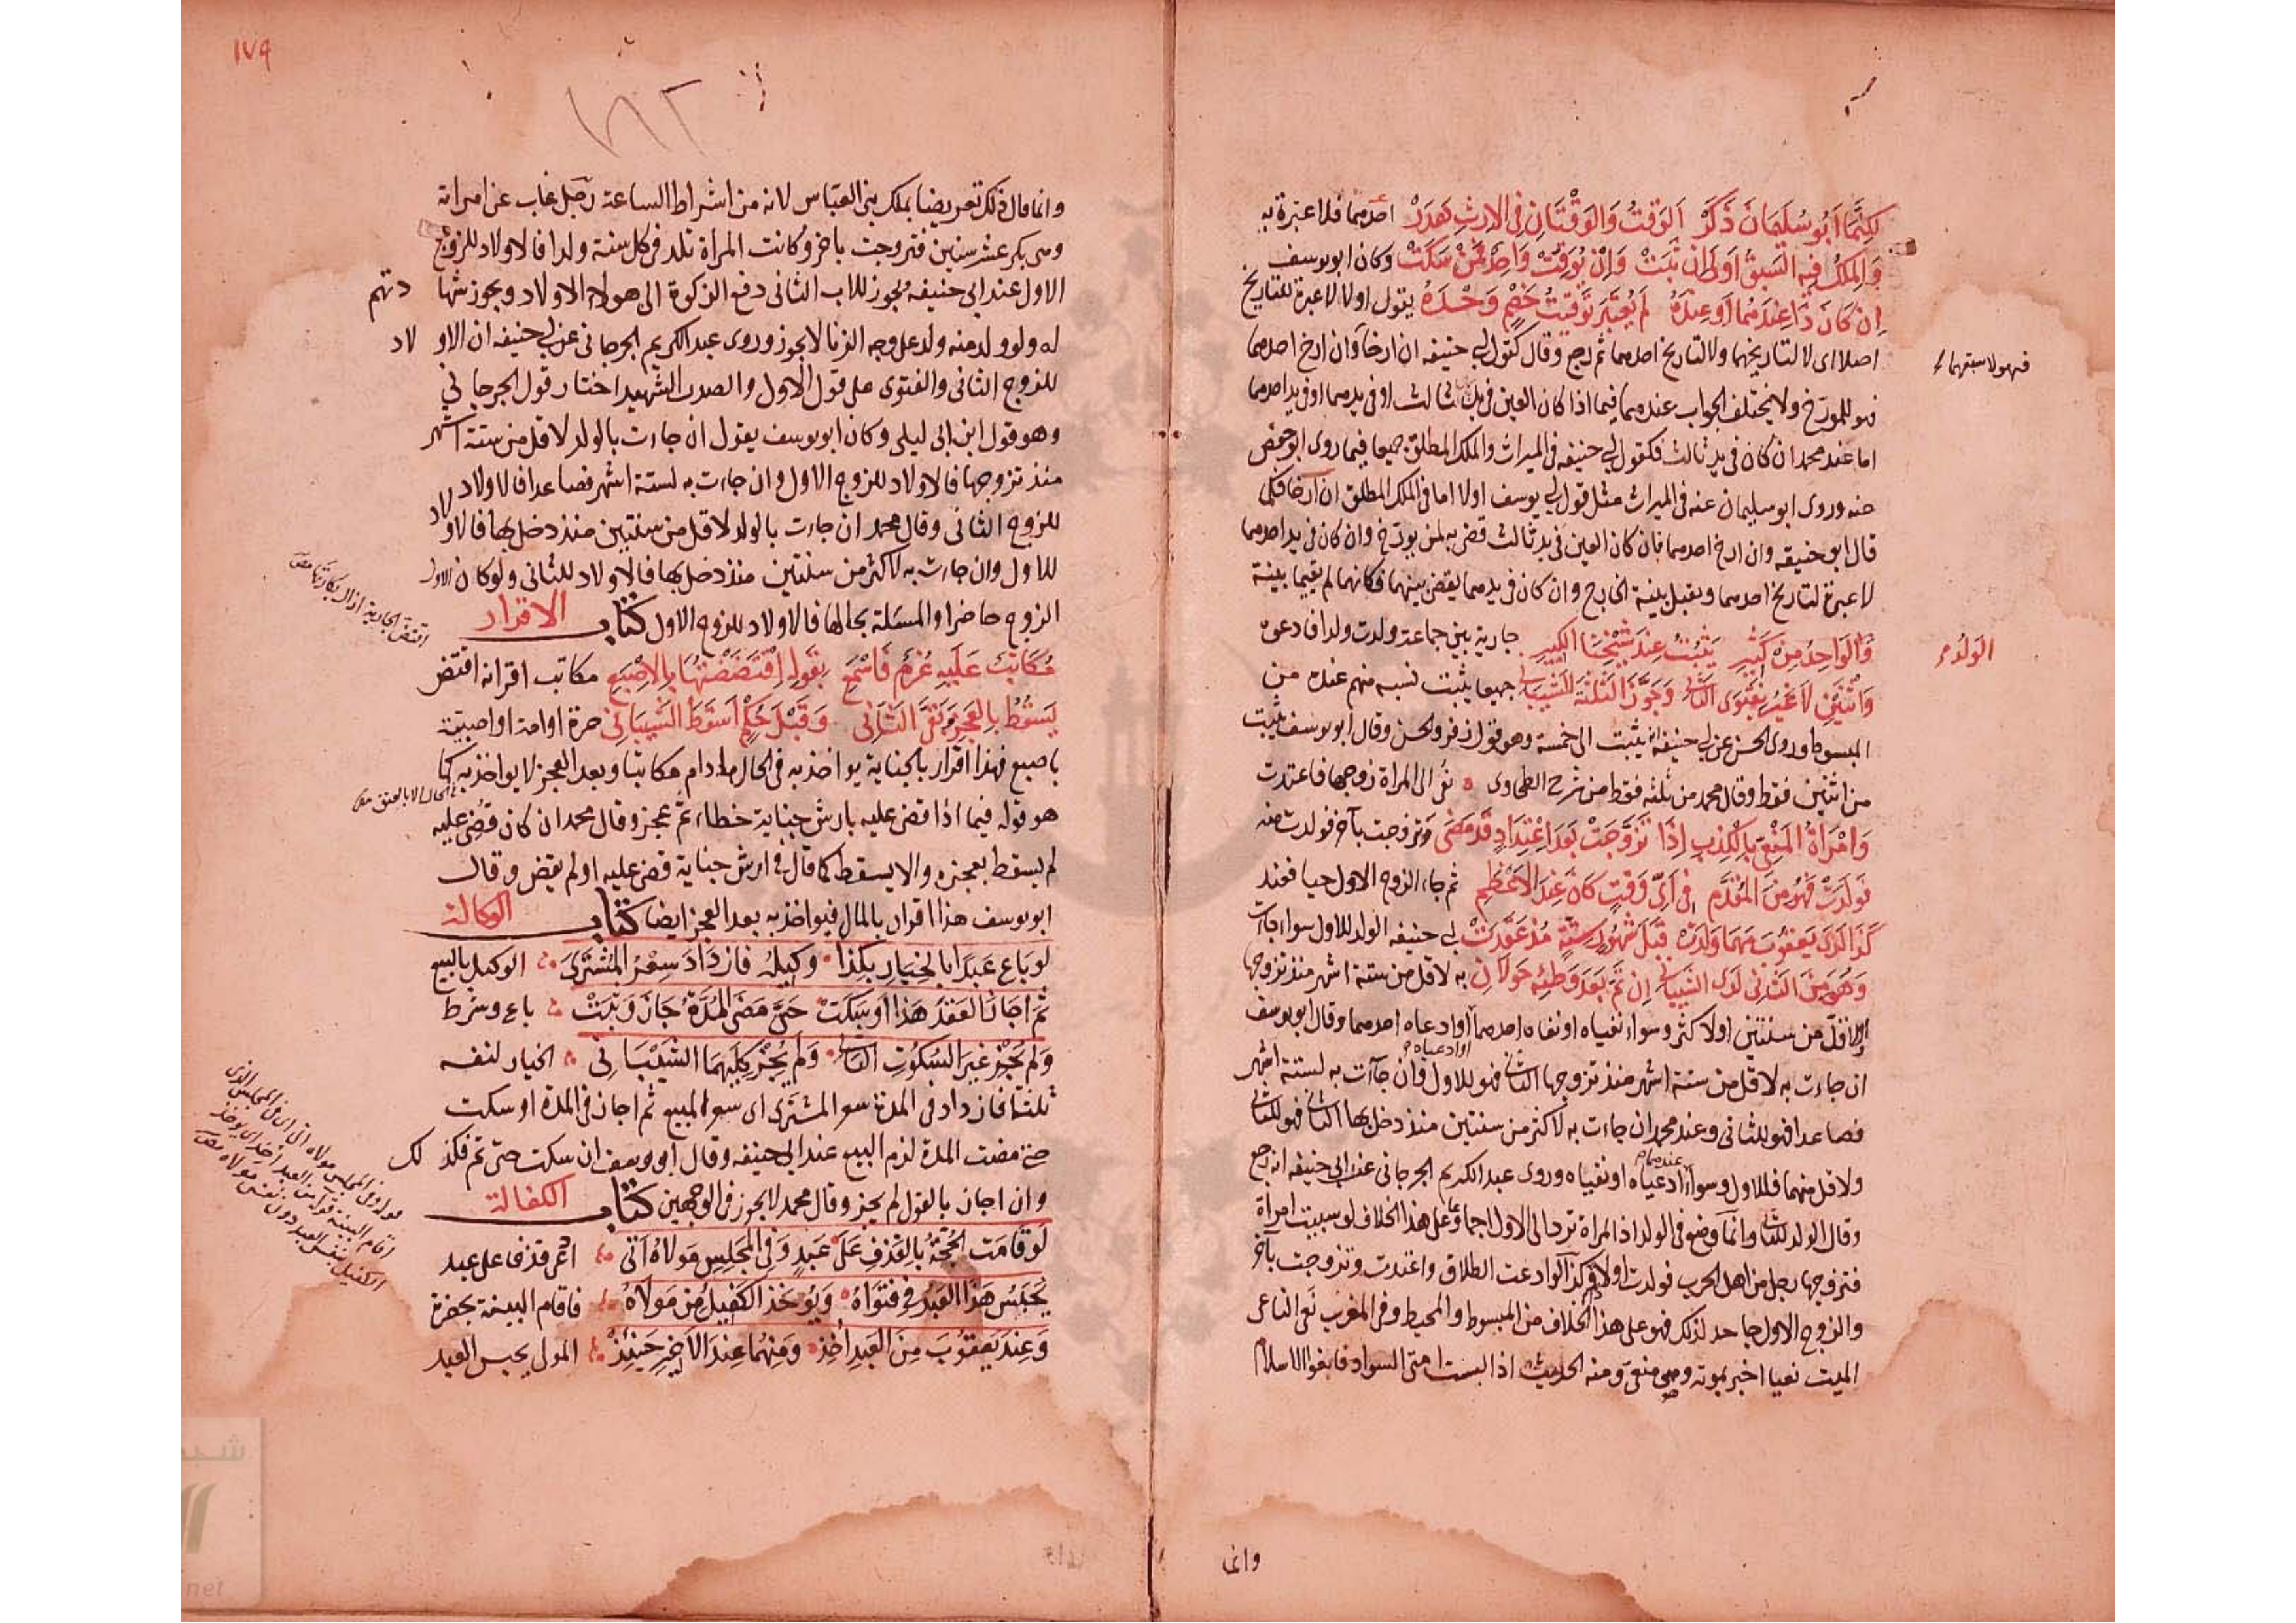 لكنما ابو سليمان ذكر الوقت والوقتان في الارث هدر احدهما فلا عبرة به
والملك فيه السبق اوطان ثبت وان يوقت واحد لمن سكت وكان ابو يوسف
ان كان ذا عندهما او عنده لم يعتبر توقيت خصم وحده يقول اولا لا عبرة للتاريخ
اصلا اى لا لتاريخهما ولا لتاريخ احدهما ثم رجع وقال كقول ابي حنيفه ان ارخا وان ارخ احدهما
فهو للمورخ ولا يختلف الجواب عندهما فيما اذا كان العين في يد ثالث او في يدهما او في يد احدهما
اما عند محمد ان كان في يد ثالث فكقول ابي حنيفه في الميراث والملك المطلق جميعا فيما روى ابو حفص
عنه وروى ابو سليمان عنه في الميراث مثل قول ابي يوسف اولا اما في الملك المطلق ان ارخا فكما
قال ابو حنيفه وان ارخ احدهما فان كان العين في يد ثالث قضى به لمن يورخ وان كان في يد احدهما
لا عبرة لتاريخ احدهما وتقبل بينة الخارج وان كان في يدهما يقضى بينهما فكانهما لم يقيما بينة
والواحد من كثير يثبت عند شيخنا الكبير جارية بين جماعة ولدت ولدا فادعوه
واثنين لا غير بفتوى الثاني وجوز الثلثة الشيباني جميعا يثبت نسبه منهم عنده من
المبسوط وروى الحسن عن ابي حنيفه انه يثبت الى خمسة وهو قول زفر والحسن وقال ابو يوسف يثبت
من اثنين فقط وقال محمد من ثلثه فقط من شرح الطحاوى نعي الى المراة زوجها فاعتدت
وامراة المنعي بالكذب اذا تزوجت بعد اعتداد قد مضى وتزوجت بآخر فولدت منه
فولدت فهو من المقدم في اي وقت كان عند الاعظم ثم جاء الزوج الاول حيا فعند
كذا لدى يعقوب مهما ولدت قبل شهور ستة مذ عقدت ابي حنيفه الولد للاول سواء جاءت
وهو من الثاني لدى الشيباني ان تم بعد وطئه حولان به لاقل من ستة اشهر منذ تزوجها
او لاقل من سنتين او لاكثر وسواء نفياه او نفاه احدهما او ادعاه احدهما وقال ابو يوسف
او ادعياه
ان جاءت به لاقل من ستة اشهر منذ تزوجها الثاني فهو للاول وان جاءت به لستة اشهر
فصاعدا فهو للثاني وعند محمد ان جاءت به لاكثر من سنتين منذ دخل بها الثاني فهو للثاني
ولاقل منهما فللاول وسواء ادعياه او نفياه وروى عبد الكريم الجرجاني عن ابي حنيفه انه رجع
وقال الولد للثاني وانما وضع في الولد اذ المراة ترد الى الاول اجماعا وعلى هذا الخلاف لو سبيت امراة
فتزوجها رجل من اهل الحرب فولدت اولادا وكذا لو ادعت الطلاق واعتدت وتزوجت بآخر
والزوج الاول جاحد لذلك فهو على هذا الخلاف من المبسوط والمحيط وفي المغرب نعى الناعى
الميت نعيا اخبر بموته وهى منعى ومنه الحديث اذا لبست امتى السواد فابغوا الاسلام
الولد
وانما
١٧٩
١٨٢
وانما قال ذلك تعريضا بملك بنى العباس لانه من اشراط الساعة رجل غاب عن امراته
وهى بكر عشر سنين فتزوجت باخر وكانت المراة تلد في كل سنة ولدا فالاولاد للزوج
الاول عند ابي حنيفه يجوز للاب الثاني دفع الزكوة الى هولاء الاولاد ويجوز شهادتهم
له ولو ولد منه ولد على وجه الزنا لا يجوز وروى عبد الكريم الجرجاني عن ابي حنيفه ان الاولاد
للزوج الثاني والفتوى على قول الاول والصدر الشهيد اختار قول الجرجاني
وهو قول ابن ابى ليلى وكان ابو يوسف يقول ان جاءت بالولد لاقل من ستة اشهر
منذ تزوجها فالاولاد للزوج الاول وان جاءت به لستة اشهر فصاعدا فالاولاد
للزوج الثاني وقال محمد ان جاءت بالولد لاقل من سنتين منذ دخل بها فالاولاد
للاول وان جاءت به لاكثر من سنتين منذ دخل بها فالاولاد للثاني ولو كان
الزوج حاضرا والمسئلة بحالها فالاولاد للزوج الاول كتاب الاقرار
مكاتب عليه غرم فاسمع بقوله اقتضضتها بالاصبع مكاتب اقر انه افتض
يسقط بالعجز وبقى الثاني وقبل حكم اسقط الشيباني حرة او امة او صبية
باصبع فهذا اقرار بالجناية يواخذ به في الحال مادام مكاتبا وبعد العجز لا يواخذ به كما
هو قوله فيما اذا قضى عليه بارش جناية خطاء ثم عجز وقال محمد ان كان قضى عليه
لم يسقط بعجزه والا يسقط كما قال في ارش جناية قضى عليه او لم يقض وقال
ابو يوسف هذا اقرار بالمال فيواخذ به بعد العجز ايضا كتاب الوكالة
لو باع عبدا بالخيار بكذا وكيله فازداد سعر المشترى الوكيل بالبيع
ثم اجاز العقد هذا او سكت حتى مضى المدة جاز وبتت باع وشرط
ولم يجز غير السكوت الثاني ولم يجز كليهما الشيباني الخيار لنفسه
ثلثا فازداد في المدة سعر المشترى اى سعر المبيع ثم اجاز في المدة او سكت
حتى مضت المدة لزم البيع عند ابي حنيفه وقال ابو يوسف ان سكت حتى تم فكذلك
وان اجاز بالقول لم يجز وقال محمد لا يجوز في الوجهين كتاب الكفالة
لو قامت الحجة بالقذف على عبد وفي المجلس مولاه اتى ادعى قذفا على عبد
يحبس هذا العبد في فتواه ويوخذ الكفيل من مولاه فاقام البينة بحضرة
وعند يعقوب من العبد اخذ ومنهما عند الاخير حينئذ المولى يحبس العبد
افتض الجارية ازال بكارتها